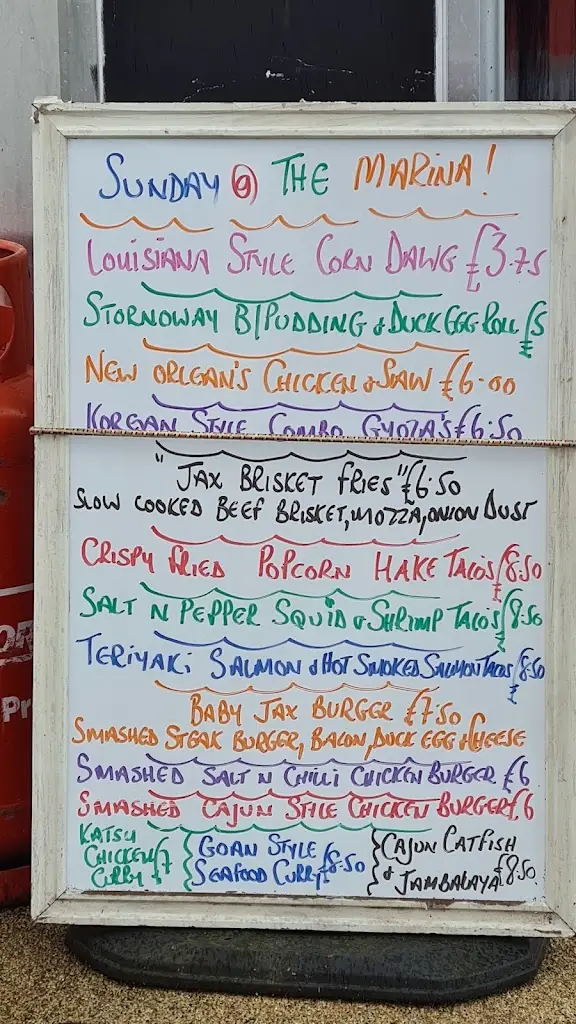 SUNDAY @ THE MARINA!
LOUISIANA STYLE CORN DAWG £3.75
STORNOWAY B/PUDDING & DUCK EGG ROLL £5
NEW ORLEAN'S CHICKEN & SLAW £6.00
KOREAN STYLE COMBO GYOZA'S £6.50
"JAX BRISKET FRIES" £6.50
SLOW COOKED BEEF BRISKET, MOZZA, ONION DUST
CRISPY FRIED POPCORN HAKE TACO'S £8.50
SALT N PEPPER SQUID & SHRIMP TACO'S £8.50
TERIYAKI SALMON & HOT SMOKED SALMON TACOS £8.50
BABY JAX BURGER £7.50
SMASHED STEAK BURGER, BACON, DUCK EGG & CHEESE
SMASHED SALT N CHILLI CHICKEN BURGER £6
SMASHED CAJUN STYLE CHICKEN BURGER £6
KATSU
CHICKEN £7
CURRY
GOAN STYLE
SEAFOOD CURRY £8.50
CAJUN CATFISH
& JAMBALAYA £8.50
Pr